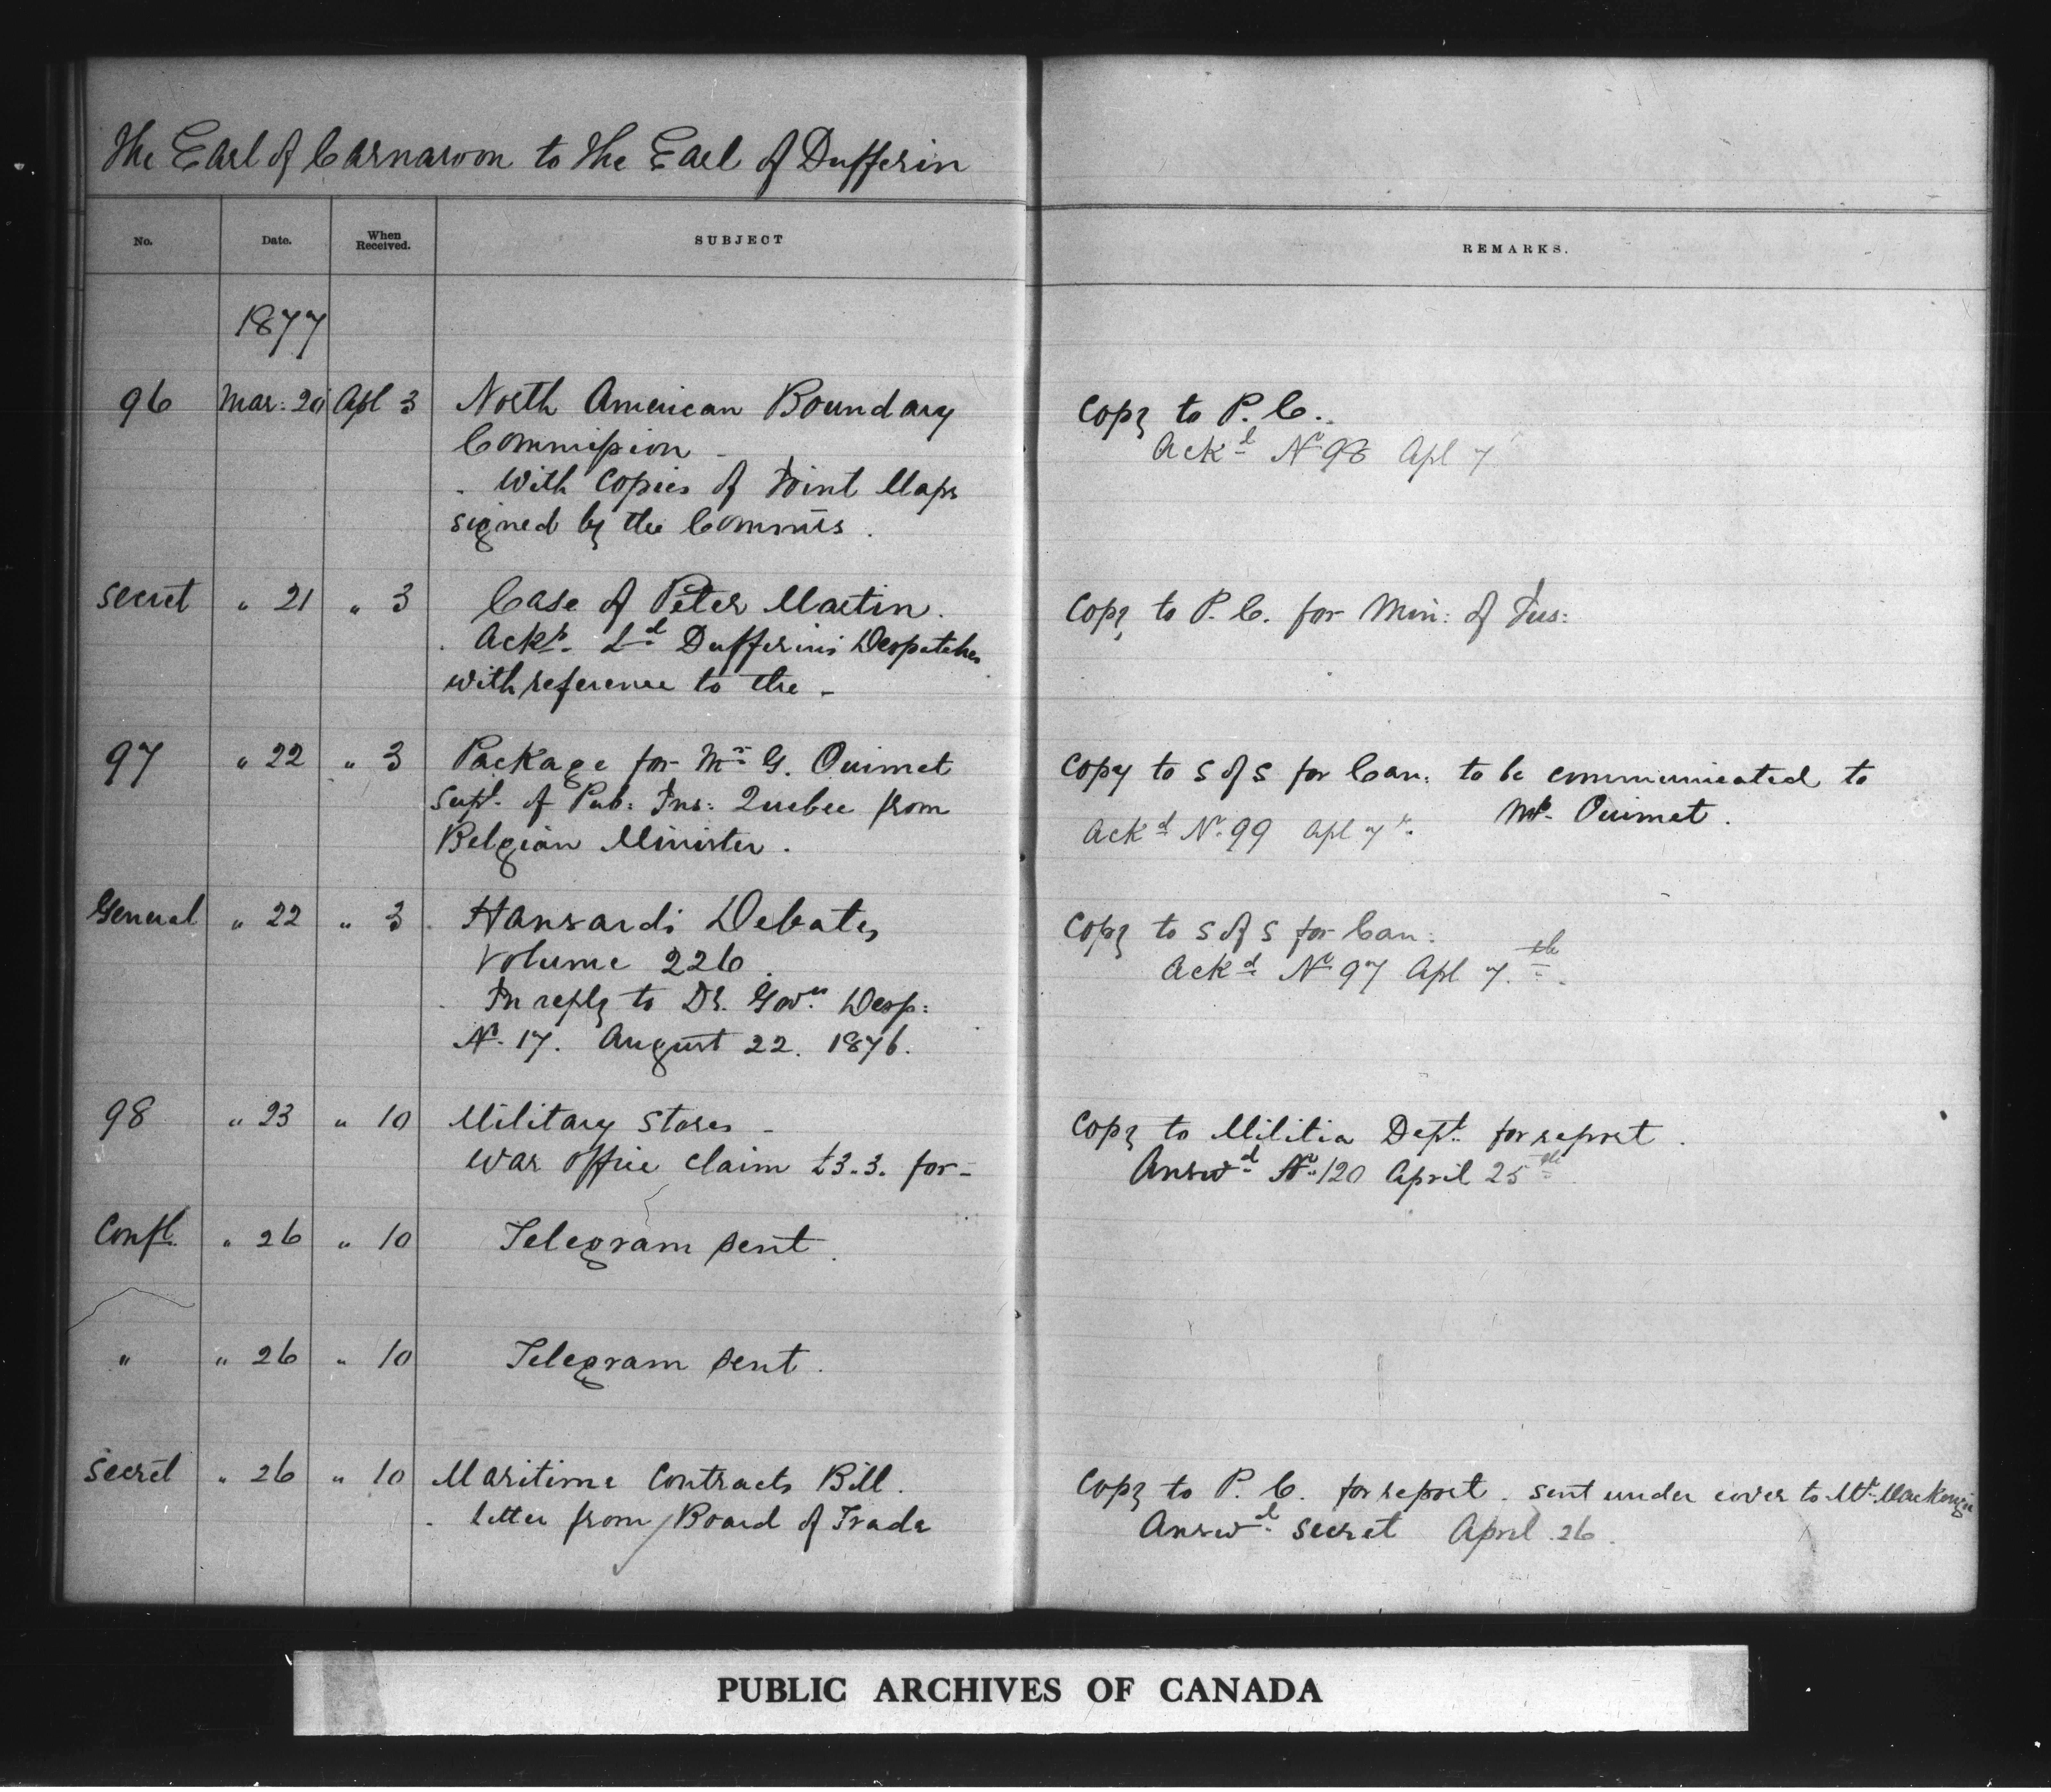 The Earl of Carnarvon to the Earl of Dufferin
No. Date. When Received. SUBJECT REMARKS.
1877
96 Mar: 20 Apl 3 North American Boundary Copy to P. C.
Commission Ackd No 98 Apl 7
With Copies of Joint Maps
signed by the Commrs.
Secret " 21 " 3 Case of Peter Martin. Copy to P. C. for Min: of Jus:
Ackg Ld Dufferin's Despatches
with reference to the -
97 " 22 " 3 Package for Mr G. Ouimet Copy to S of S for Can: to be communicated to
Supt. of Pub: Ins: Quebec from Mr. Ouimet.
Belgian Minister. Ackd No 99 Apl 7
General " 22 " 3 Hansard's Debates Copy to S of S for Can:
Volume 226. Ackd No 97 Apl 7th
In reply to Dy. Govrs Desp:
No 17. August 22. 1876.
98 " 23 " 10 Military Stores - Copy to Militia Dept. for report.
War Office claim £3.3. for - Answd No 120 April 25th
Confl. " 26 " 10 Telegram sent.
" " 26 " 10 Telegram sent.
Secret " 26 " 10 Maritime Contracts Bill. Copy to P. C. for report. sent under cover to Mr. Mackenzie
letter from Board of Trade Answd Secret April 26.
PUBLIC ARCHIVES OF CANADA